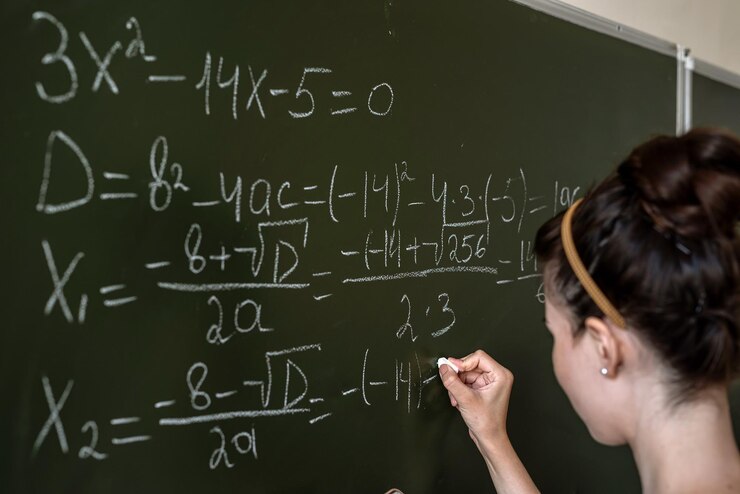 3x² - 14x - 5 = 0
D = b² - 4ac = (-14)² - 4·3·(-5) = 19
x₁ = (-b + √D)/(2a) = (-(-14 + √256)/(2·3) = 14
x₂ = (-b - √D)/(2a) = -(-14) -